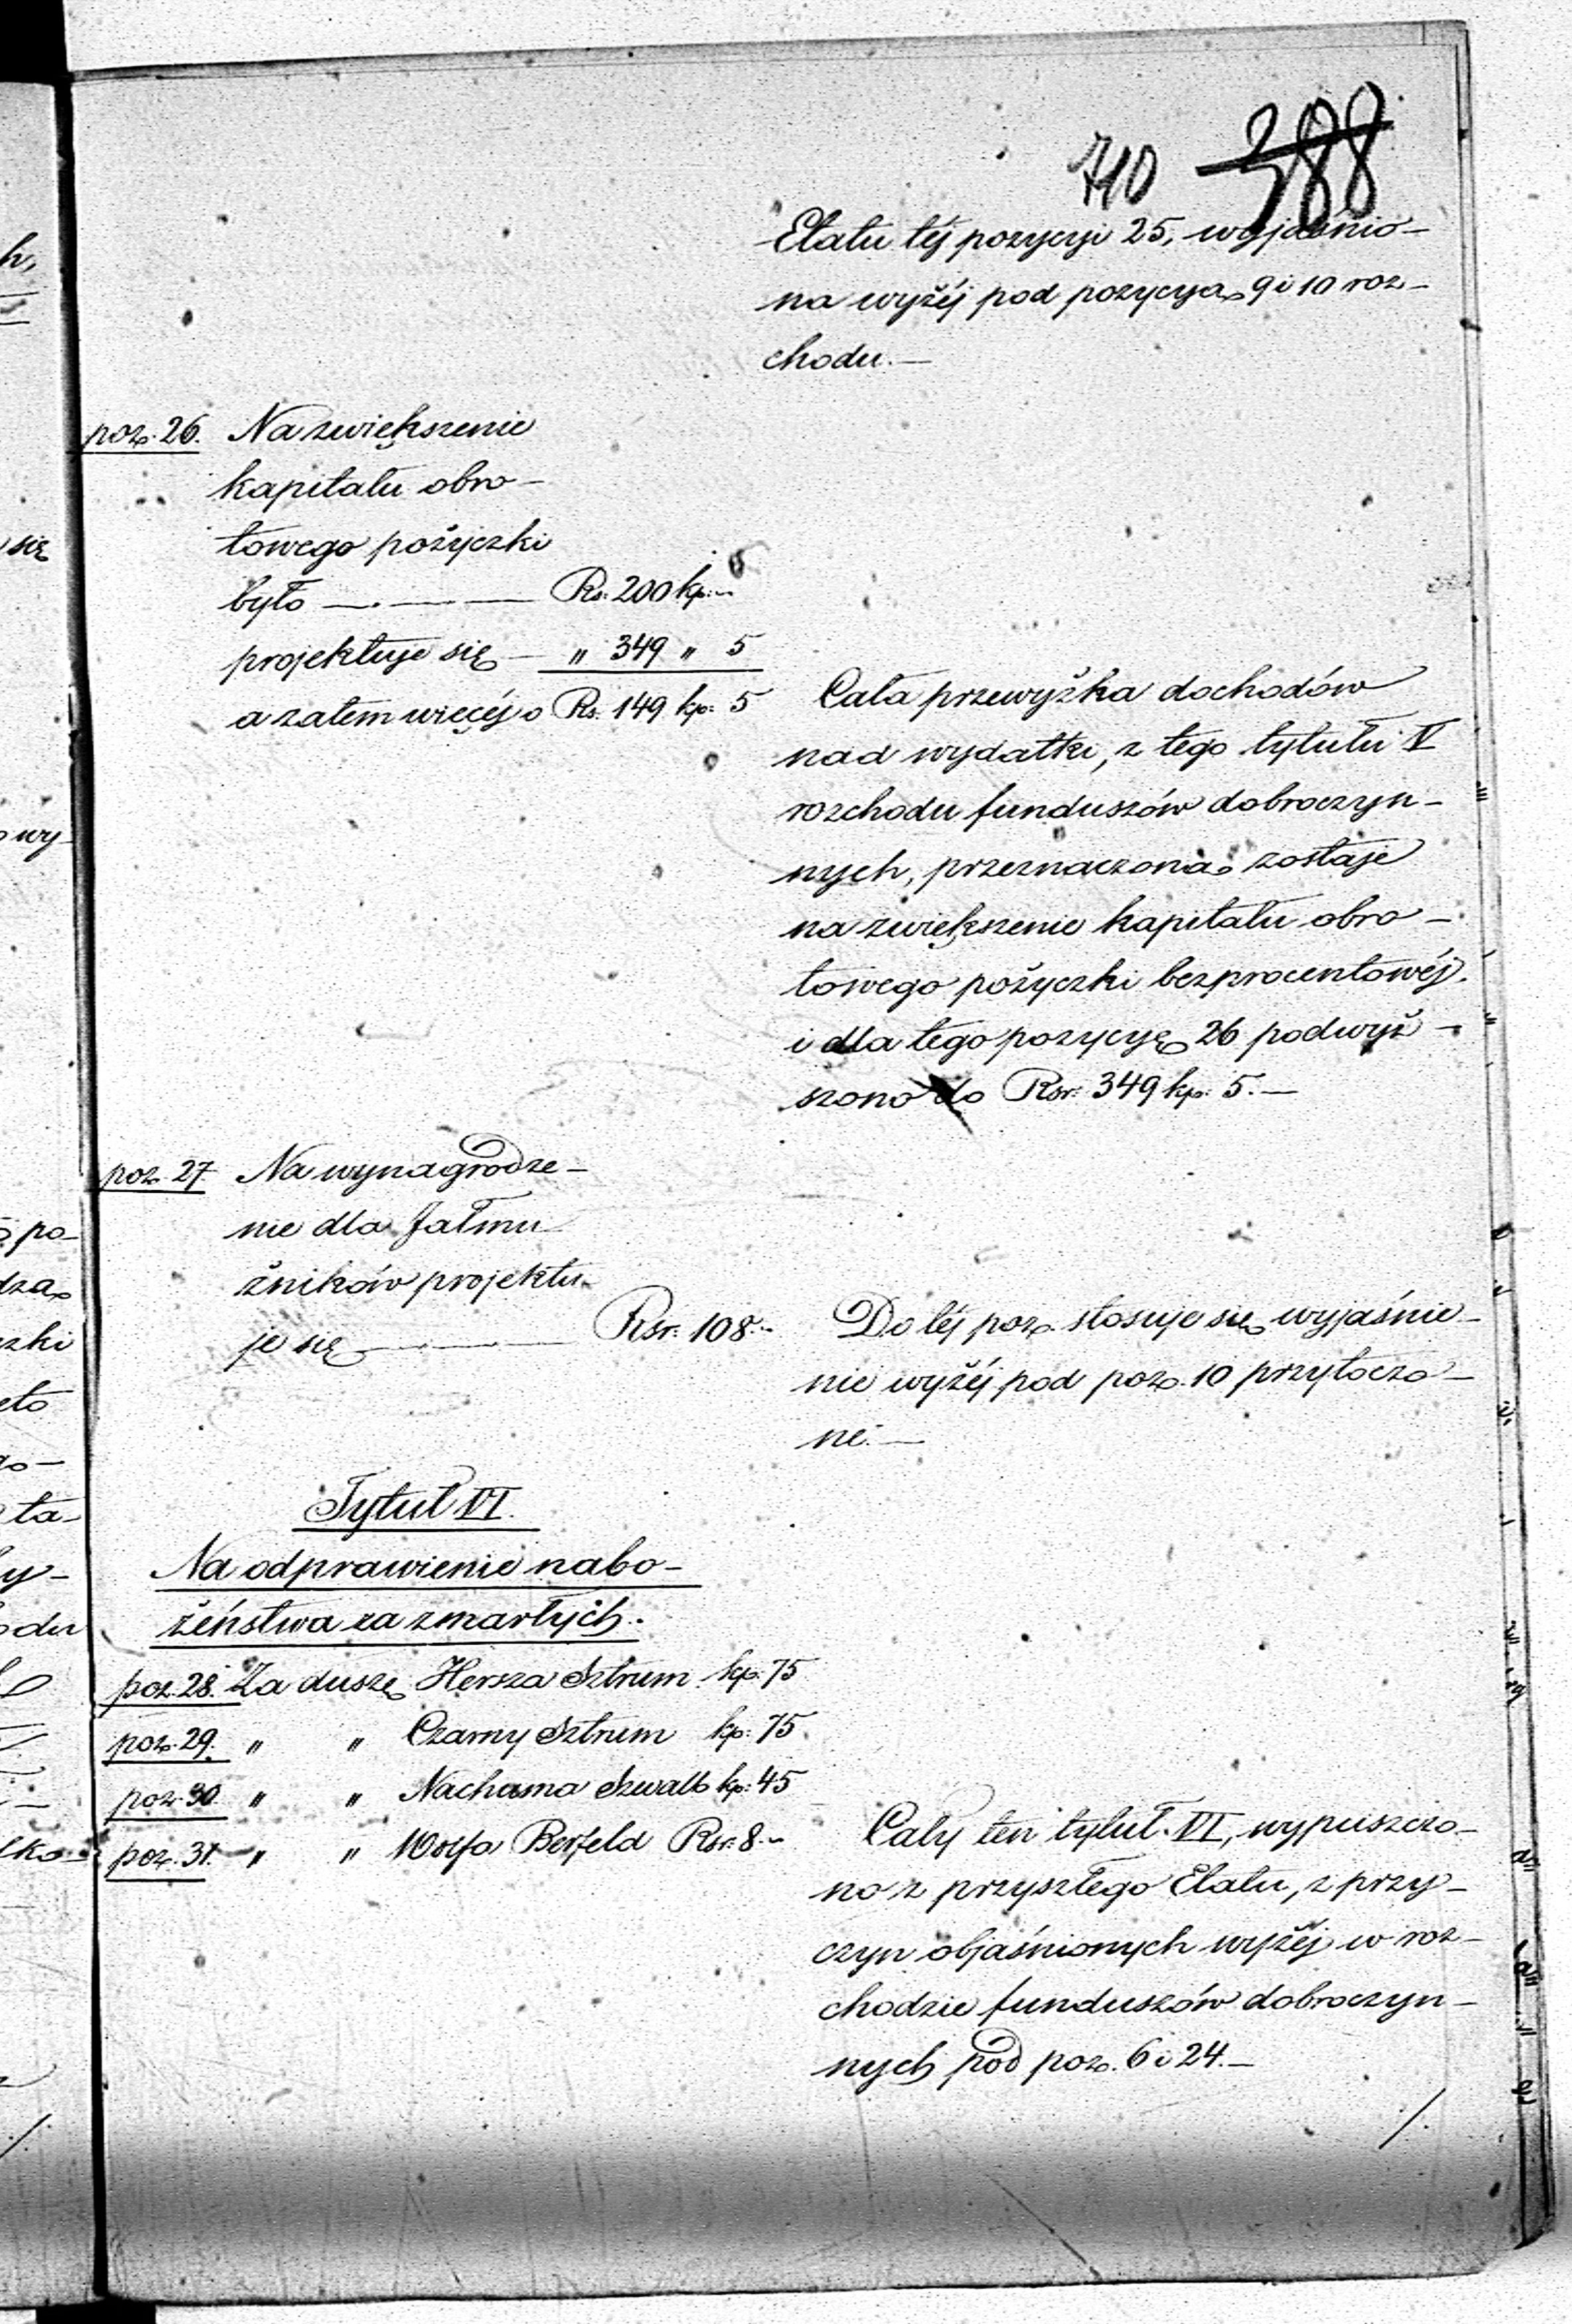 710 388
Etatu téj pozycyi 25, wyjaśnio-
na wyżéj pod pozycyą 9 i 10 roz-
chodu.—
poz. 26. Na zwiększenie
kapitału obro-
towego pożyczki
było —.— Rs. 200 kp. „
projektuje się — „ 349 „ 5
a zatem więcéj o Rs. 149 kp. 5
Cała przewyżka dochodów
nad wydatki, z tego tytułu V
rozchodu funduszów dobroczyn-
nych, przeznaczoną zostaje
na zwiększenie kapitału obro-
towego pożyczki bezprocentowéj.
i dla tego pozycyę 26 podwyż-
szono do Rsr. 349 kp. 5.—
poz. 27. Na wynagrodze-
nie dla Jałmu
żników projektu-
je się —.— Rsr. 108.„
Do téj poz. stosuje się wyjaśnie-
nie wyżéj pod poz. 10 przytoczo-
ne.—
Tytuł VI.
Na odprawienie nabo-
żeństwa za zmarłych.
poz. 28. Za duszę Hersza Sztrum kp. 75
poz. 29. „ „ Czarny Sztrum kp. 75.
poz. 30. „ „ Nachama Szwalb kp. 45
poz. 31. „ „ Wolfa Berfeld Rsr. 8.„
Cały ten tytuł VI, wypuszczo-
no z przyszłego Etatu, z przy-
czyn objaśnionych wyżéj w roz-
chodzie funduszów dobroczyn-
nych pod poz. 6 i 24.—
./.